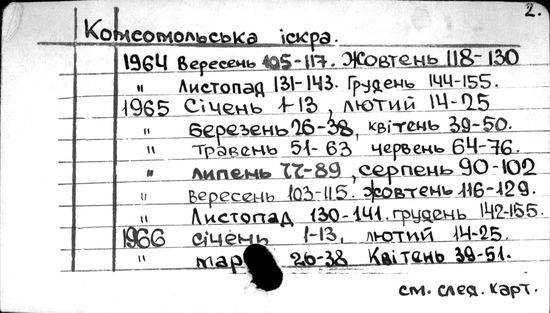 2.
Комсомольська іскра.
1964 Вересень 105-117. Жовтень 118-130
" Листопад 131-143. Грудень 144-155.
1965 Січень 1-13, лютий 14-25
" Березень 26-38, квітень 39-50.
" Травень 51-63 червень 64-76.
" липень 77-89, серпень 90-102
" вересень 103-115. жовтень 116-129.
" Листопад 130-141. грудень 142-155.
1966 січень 1-13, лютий 14-25.
" мар 26-38 Квітень 39-51.
см. след. карт.